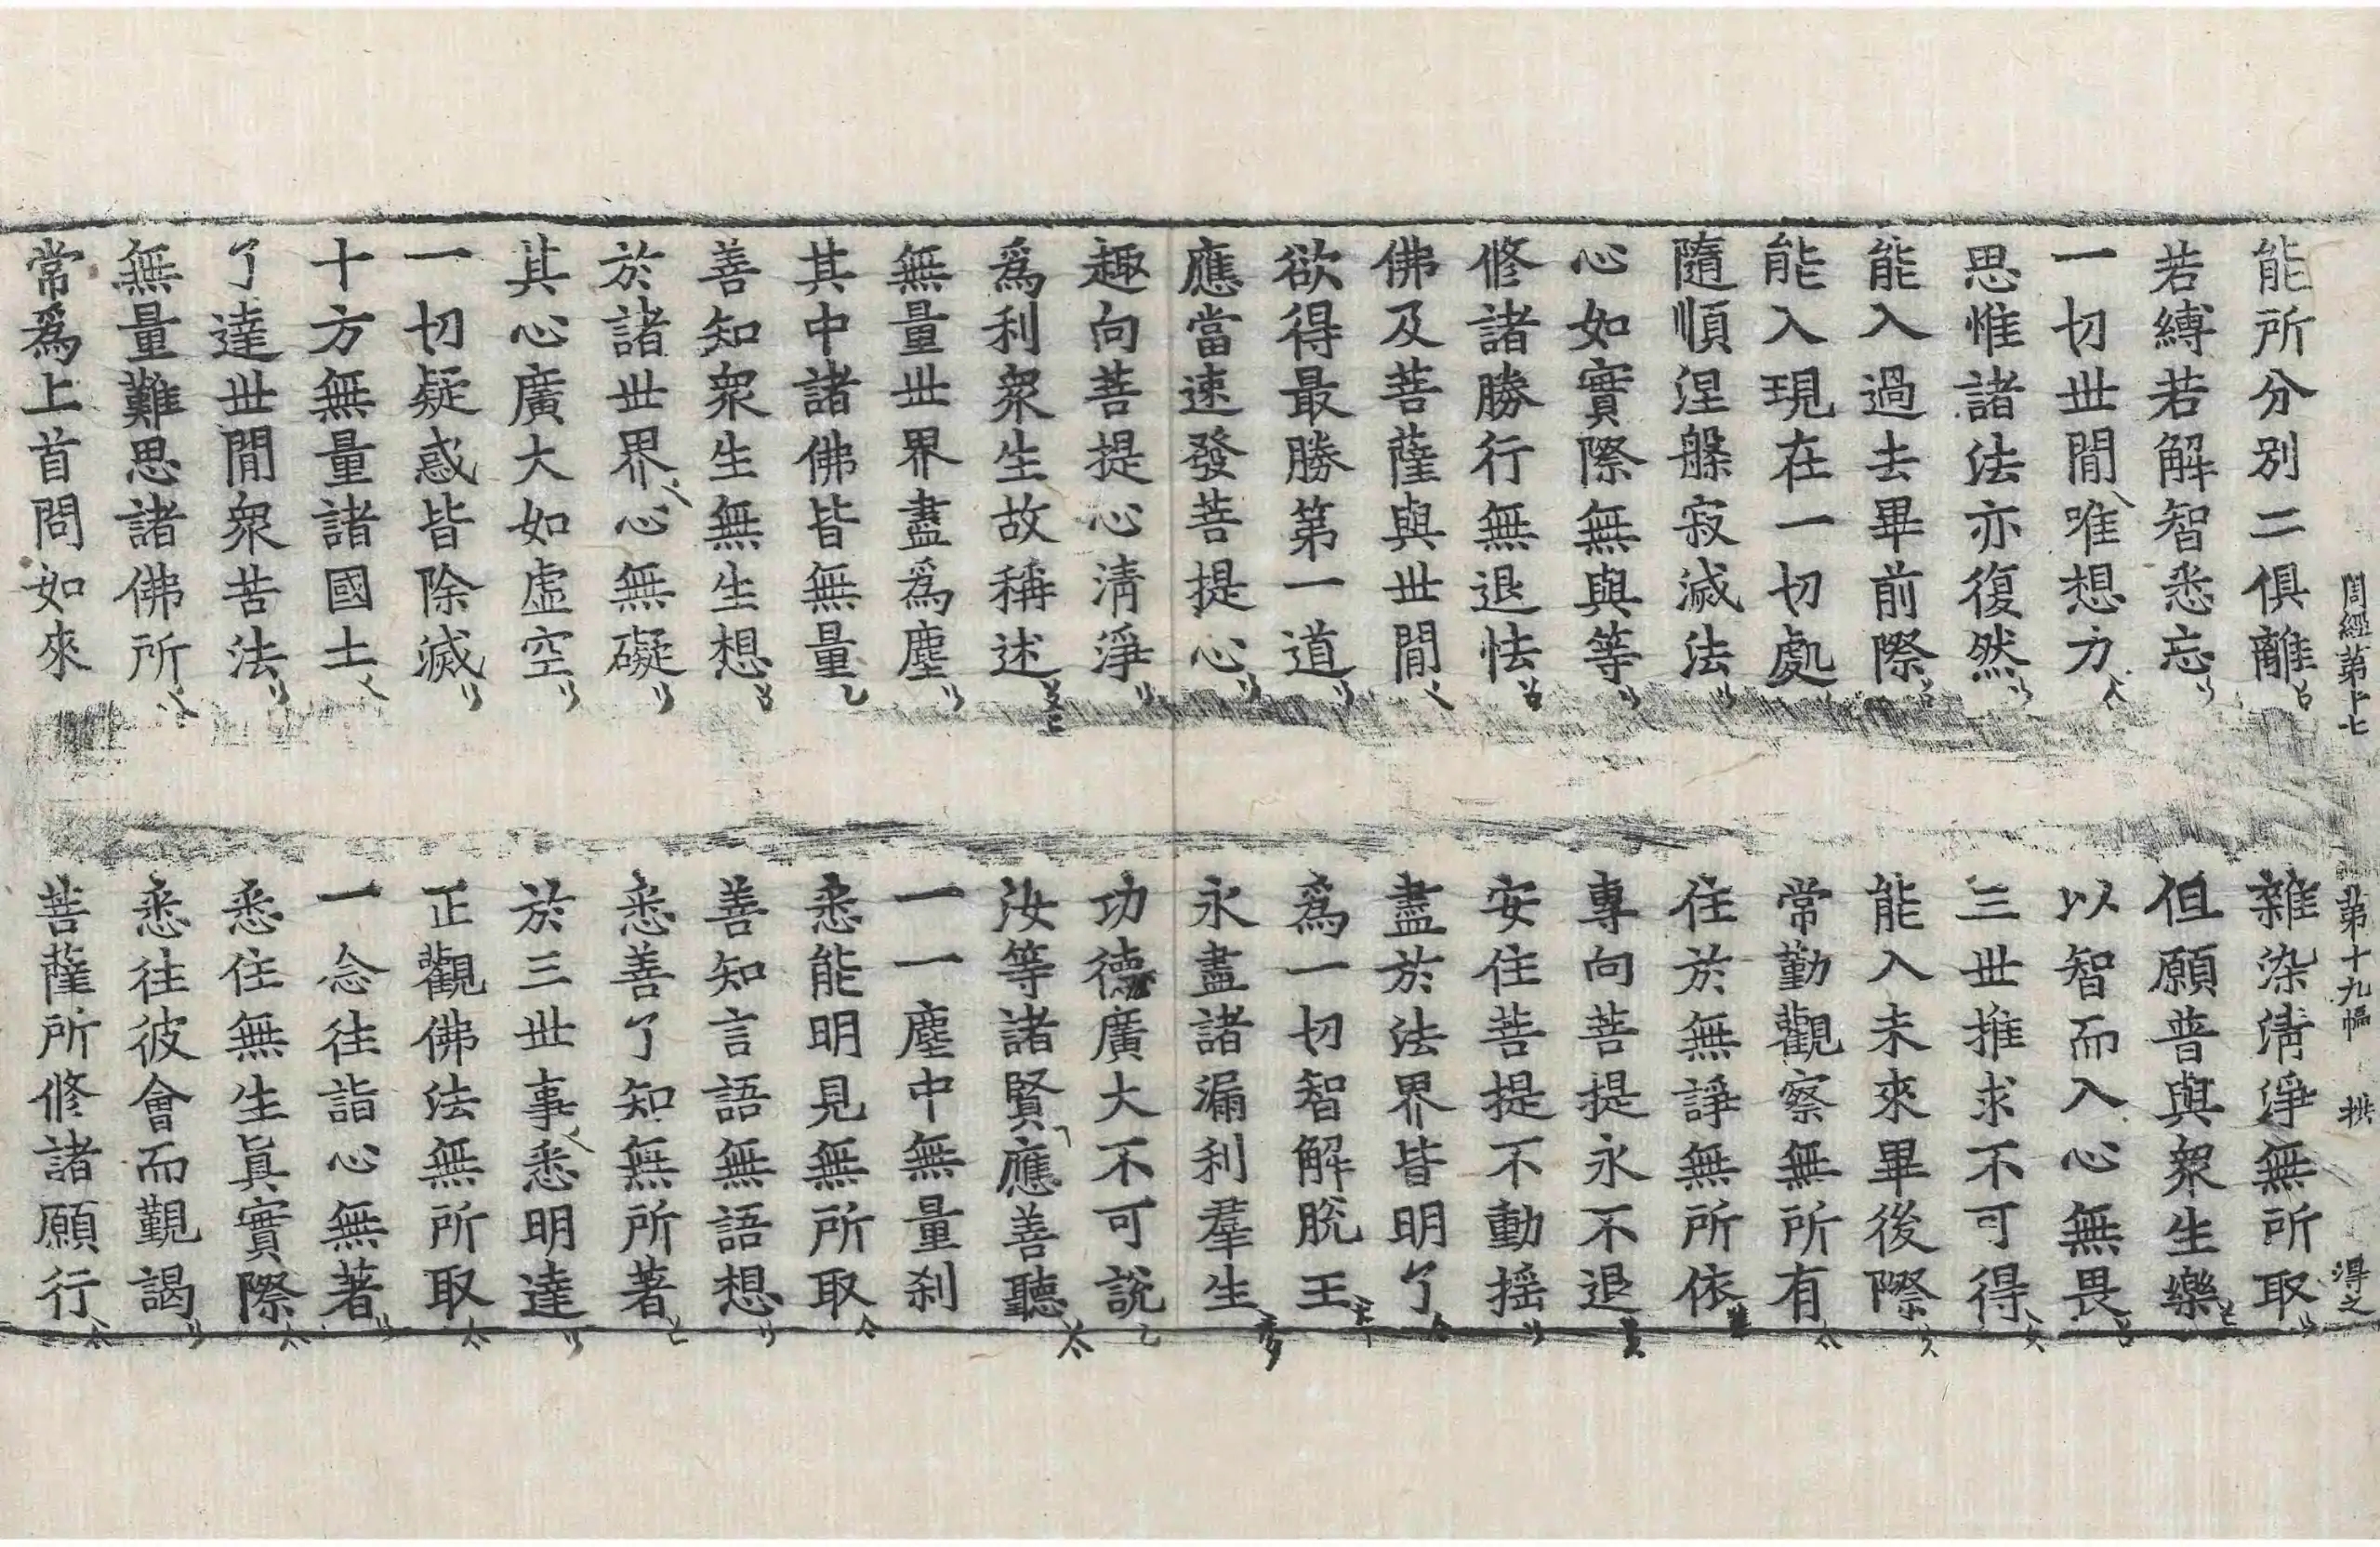 周經第十七 第十九幅 拱 得之
能所分別二俱離 雜染清淨無所取
若縛若解智悉忘 但願普與衆生樂
一切世閒唯想力 以智而入心無畏
思惟諸法亦復然 三世推求不可得
能入過去畢前際 能入未來畢後際
能入現在一切處 常勤觀察無所有
隨順涅槃寂滅法 住於無諍無所依
心如實際無與等 專向菩提永不退
修諸勝行無退怯 安住菩提不動搖
佛及菩薩與世閒 盡於法界皆明了
欲得最勝第一道 爲一切智解脫王
應當速發菩提心 永盡諸漏利羣生
趣向菩提心清淨 功德廣大不可說
爲利衆生故稱述 汝等諸賢應善聽
無量世界盡爲塵 一一塵中無量刹
其中諸佛皆無量 悉能明見無所取
善知衆生無生想 善知言語無語想
於諸世界心無礙 悉善了知無所著
其心廣大如虛空 於三世事悉明達
一切疑惑皆除滅 正觀佛法無所取
十方無量諸國土 一念往詣心無著
了達世閒衆苦法 悉住無生眞實際
無量難思諸佛所 悉往彼會而覲謁
常爲上首問如來 菩薩所修諸願行